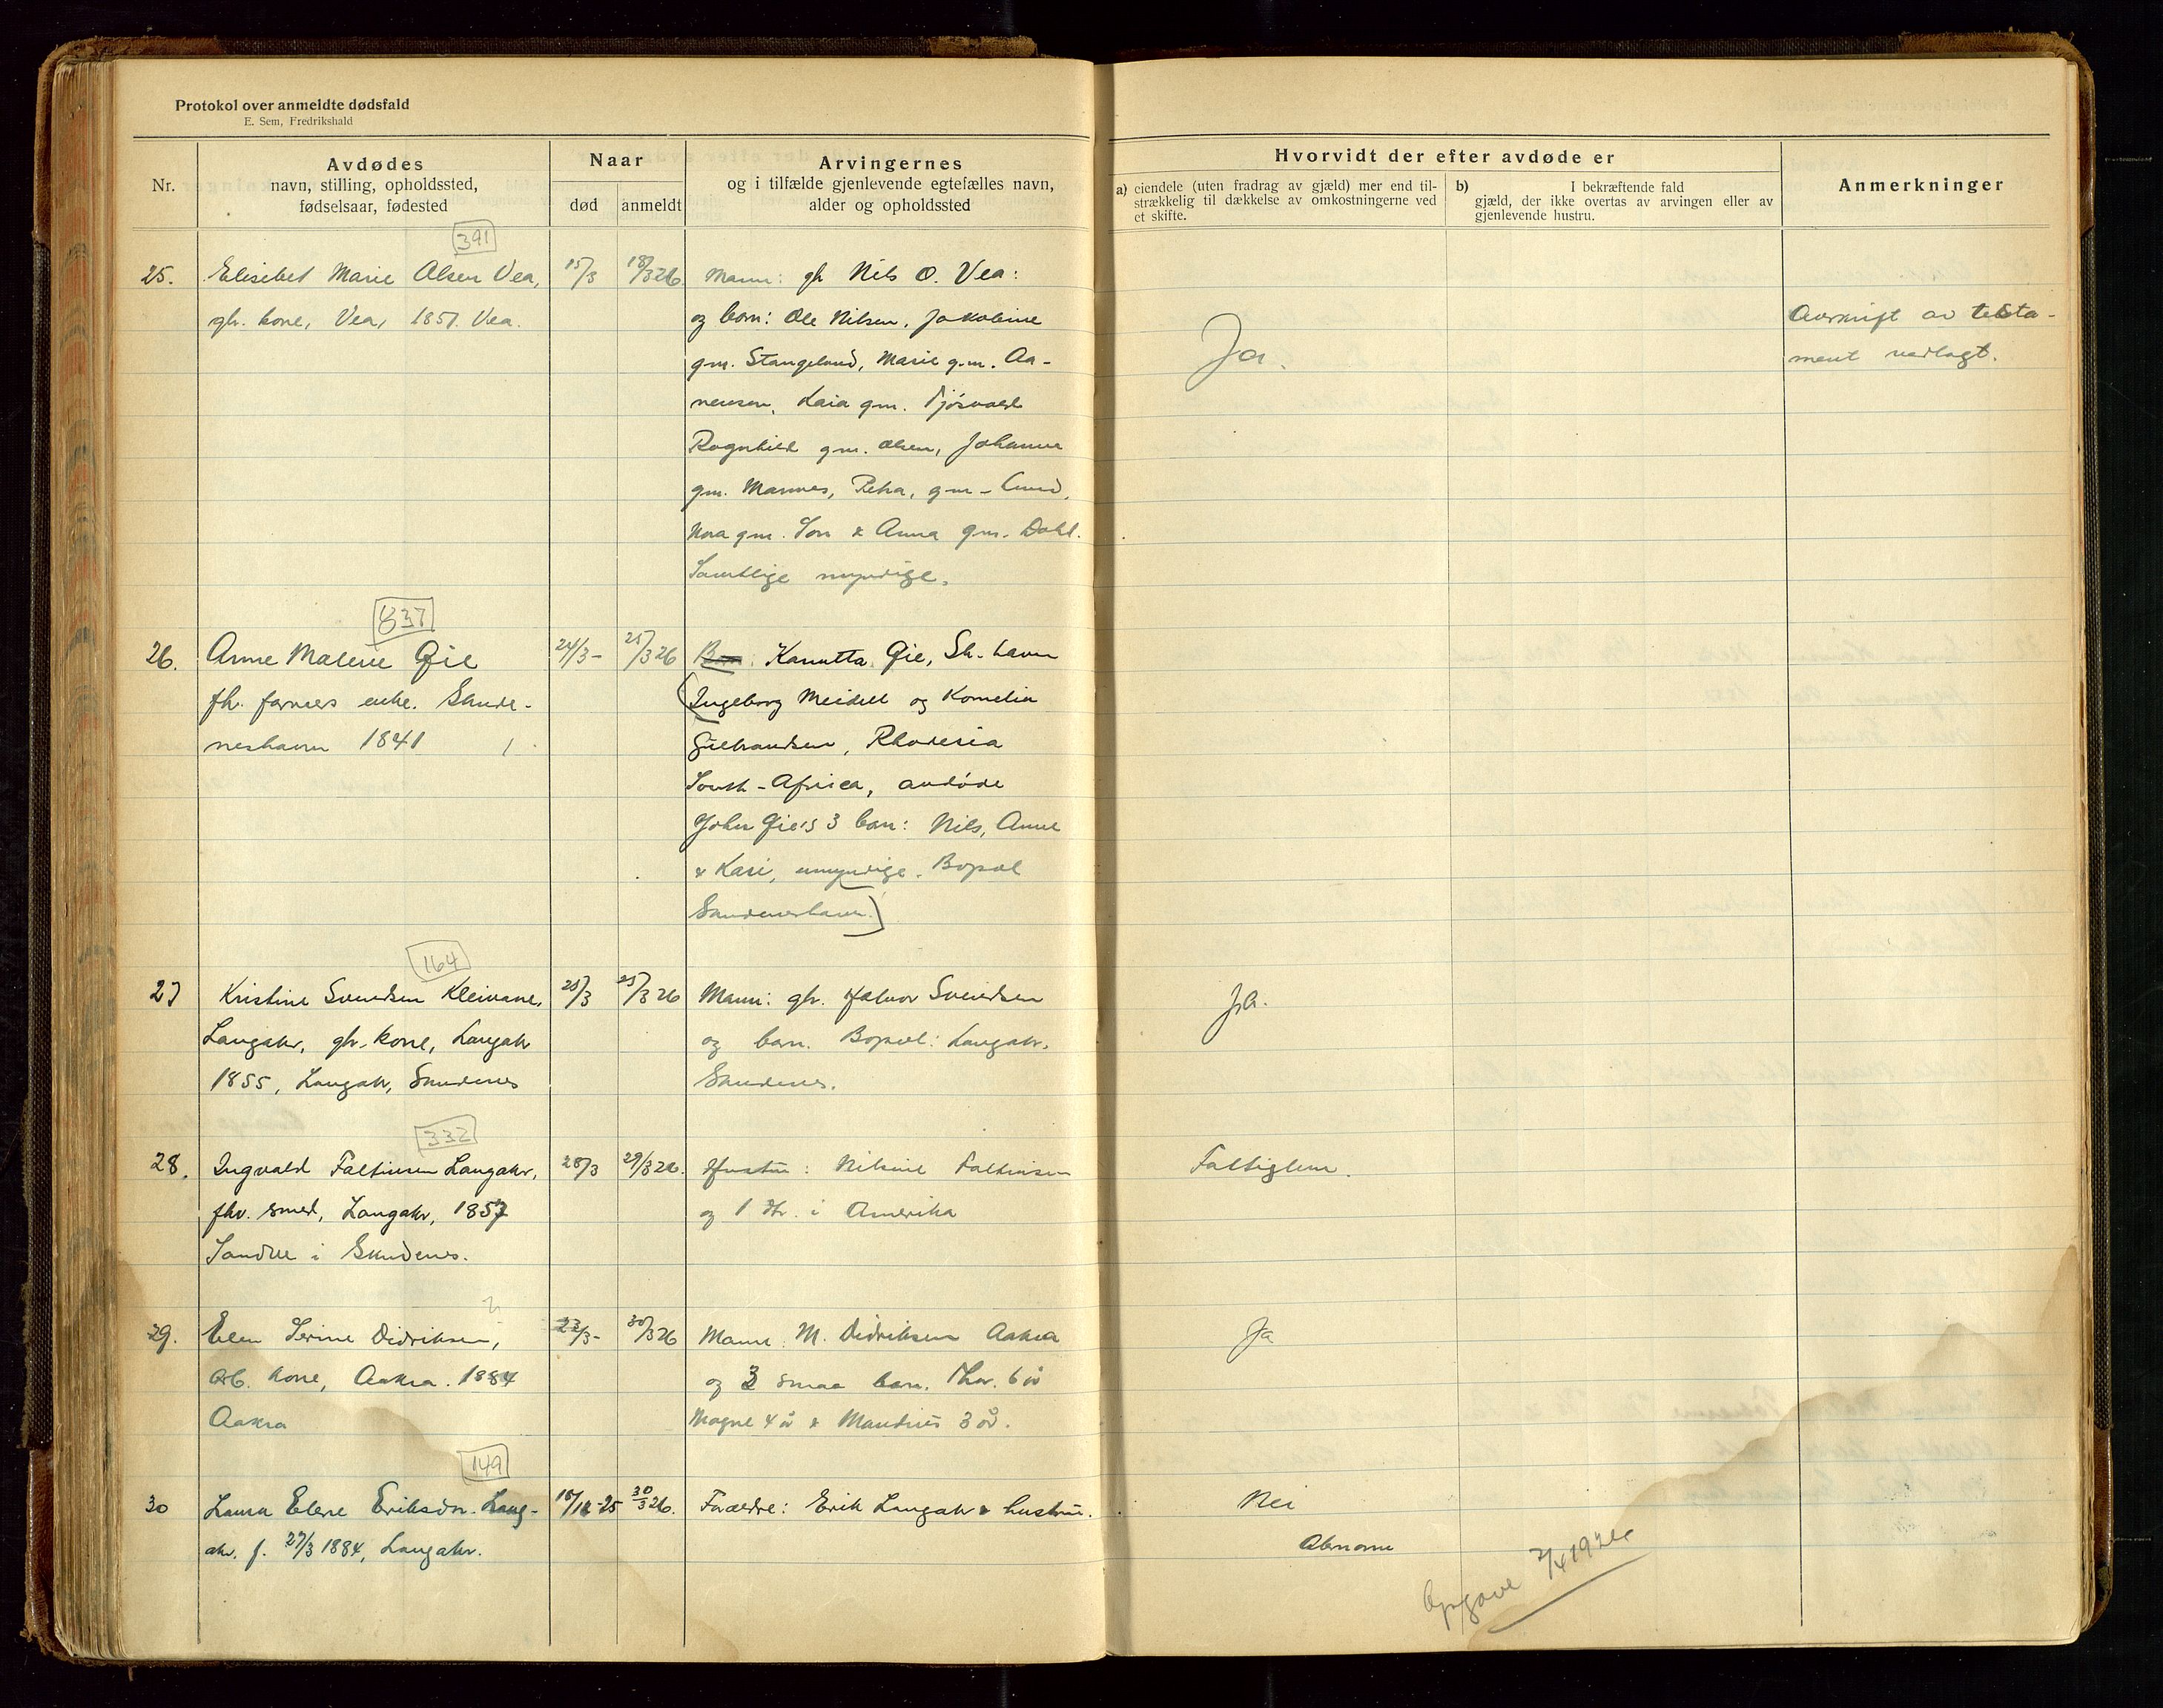 Protokol over anmeldte dødsfald
E. Sem, Fredrikshald
Nr.
Avdødes
navn, stilling, opholdssted,
fødselsaar, fødested
Naar
død
anmeldt
Arvingernes
og i tilfælde gjenlevende egtefælles navn,
alder og opholdssted
Hvorvidt der efter avdøde er
a) eiendele (uten fradrag av gjæld) mer end til-
strækkelig til dækkelse av omkostningerne ved
et skifte.
b) I bekræftende fald
gjæld, der ikke overtas av arvingen eller av
gjenlevende hustru.
Anmerkninger
391
25.
Elisebet Marie Olsen Vea,
gbr. kone, Vea, 1857. Vea.
15/3
18/3 26.
Mann: gbr Nils O. Vea:
og barn: Ole Nilsen, Jakobine
gm. Stangeland, Marie g.m. Aa-
nensen, Kaia gm.
Ragnhild gm. Olsen, Johanne
gm. Mannes, Petra, gm. Lund,
Nora gm. & Anna gm. Dahl.
Samtlige myndige.
Ja.
Avskrift av testa-
ment vedlagt.
837
26.
Anne Malene Gie
fh. farvers enke. Skude-
neshavn 1841
24/3 -
25/3 26
Barn: Kanutta Gie, Sk. havn
(Ingeborg Meidell og Kornelia
Gulbrandsen, Rhodesia
South-Africa, avdøde
John Gie's 3 barn: Nils, Anne
& Kari, umyndige. Bopæl
Skudeneshavn.)
164
27
Kristine Svendsen Kleivane,
Langaker, gbr. kone, Langak
1855, Langak, Skudenes
20/3
25/3 26
Mann: gbr. Halvor Svendsen
og barn. Bopæl: Langakr.
Skudenes.
Ja.
332
28.
Ingvald Faltinsen Langakr,
fhv. smed, Langakr, 1857
Sandve i Skudenes.
28/3
29/3 26.
Hustru: Nilsine Faltinsen
og 1 dtr. i Amerika
Fattiglem.
29.
Elen Serine Didriksen,
arb. kone, Aakra. 1884
Aakra
23/3 -
30/3 26
Mann M. Didriksen Aakra
og 3 smaa barn. Thor. 6 år
Magne 4 år & Mandius 3 år.
Ja
149
30
Laura Elene Eriksdtr. Lang-
akr. f. 27/3 1884, Langakr.
18/12-25
30/3 26.
Forældre: Erik Langakr & hustru.
Nei
Abnorm
Opgave 2/4 1926